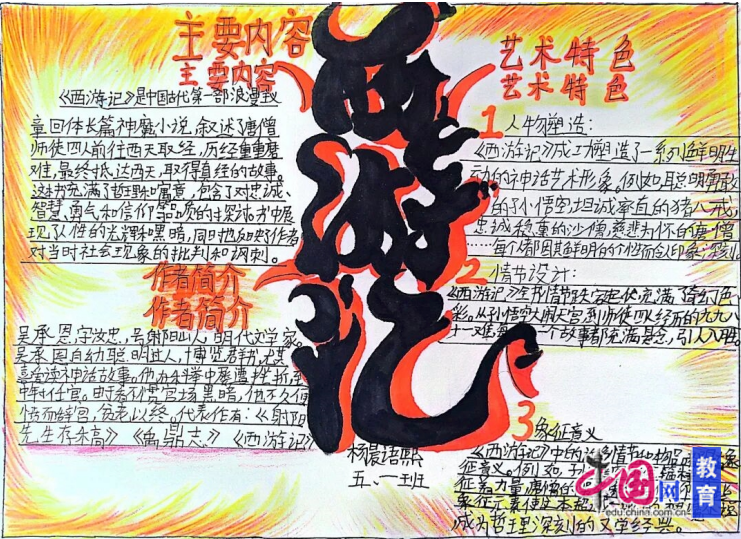 主要内容
主要内容
《西游记》是中国古代第一部浪漫主义
章回体长篇神魔小说，叙述了唐僧
师徒四人前往西天取经，历经重重磨
难，最终抵达西天，取得真经的故事。
这本书充满了哲理和寓意，包含了对忠诚、
智慧、勇气和信仰等品质的探讨，书中展
现人性的光辉和黑暗，同时也
对当时社会现象的批判和讽刺。
作者简介
作者简介
吴承恩，字汝忠，号射阳山人，明代文学家。
吴承恩自幼聪明过人，博览群书，尤其
喜会读神话故事。他力科举中屡遭挫折，到
中年任官。时看不惯官场黑暗，他不久便
愤而辞官，贫老以终，代表作有：《射阳
先生存稿》《禹鼎志》《西游记》
西游记
杨晨语熙
五、一班
艺术特色
艺术特色
1 人物塑造：
《西游记》成功塑造了一系列鲜明生
动的神话艺术形象。例如，聪明勇敢
的孙悟空，坦诚率直的猪八戒，
忠诚稳重的沙僧，慈悲为怀的唐僧
……每个都因其鲜明的个性而令人印象深刻。
2 情节设计：
《西游记》全书情节跌宕起伏，充满了奇幻色
彩。从孙悟空大闹天宫，到师徒四人经历的九九八
十一难，每一个故事都充满悬念，引人入胜。
3 象征意义
《西游记》中的许多情节和物品
征意义。例如，
征着力量，唐僧的
象征元素使
成为哲理深刻的文学经典。
中国网
edu.china.com.cn
教育